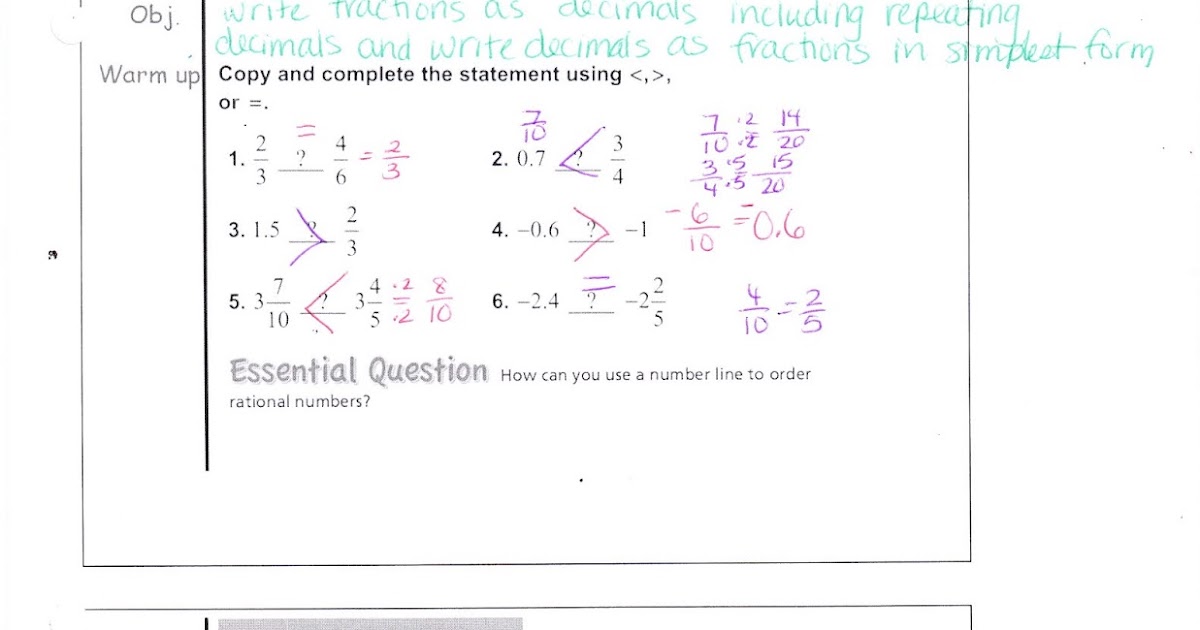 Obj. write fractions as decimals including repeating
decimals and write decimals as fractions in simplest form
Warm up Copy and complete the statement using <, >,
or =.
1. 2/3 = ? 4/6 = 2/3
2. 0.7 7/10 < ? 3/4 7/10 ·2/·2 14/20
3/4 ·5/·5 15/20
3. 1.5 > ? 2/3
4. –0.6 > ? –1 -6/10 = -0.6
5. 3 7/10 < ? 3 4/5 ·2/·2 = 8/10
6. –2.4 = ? –2 2/5 4/10 = 2/5
Essential Question How can you use a number line to order
rational numbers?